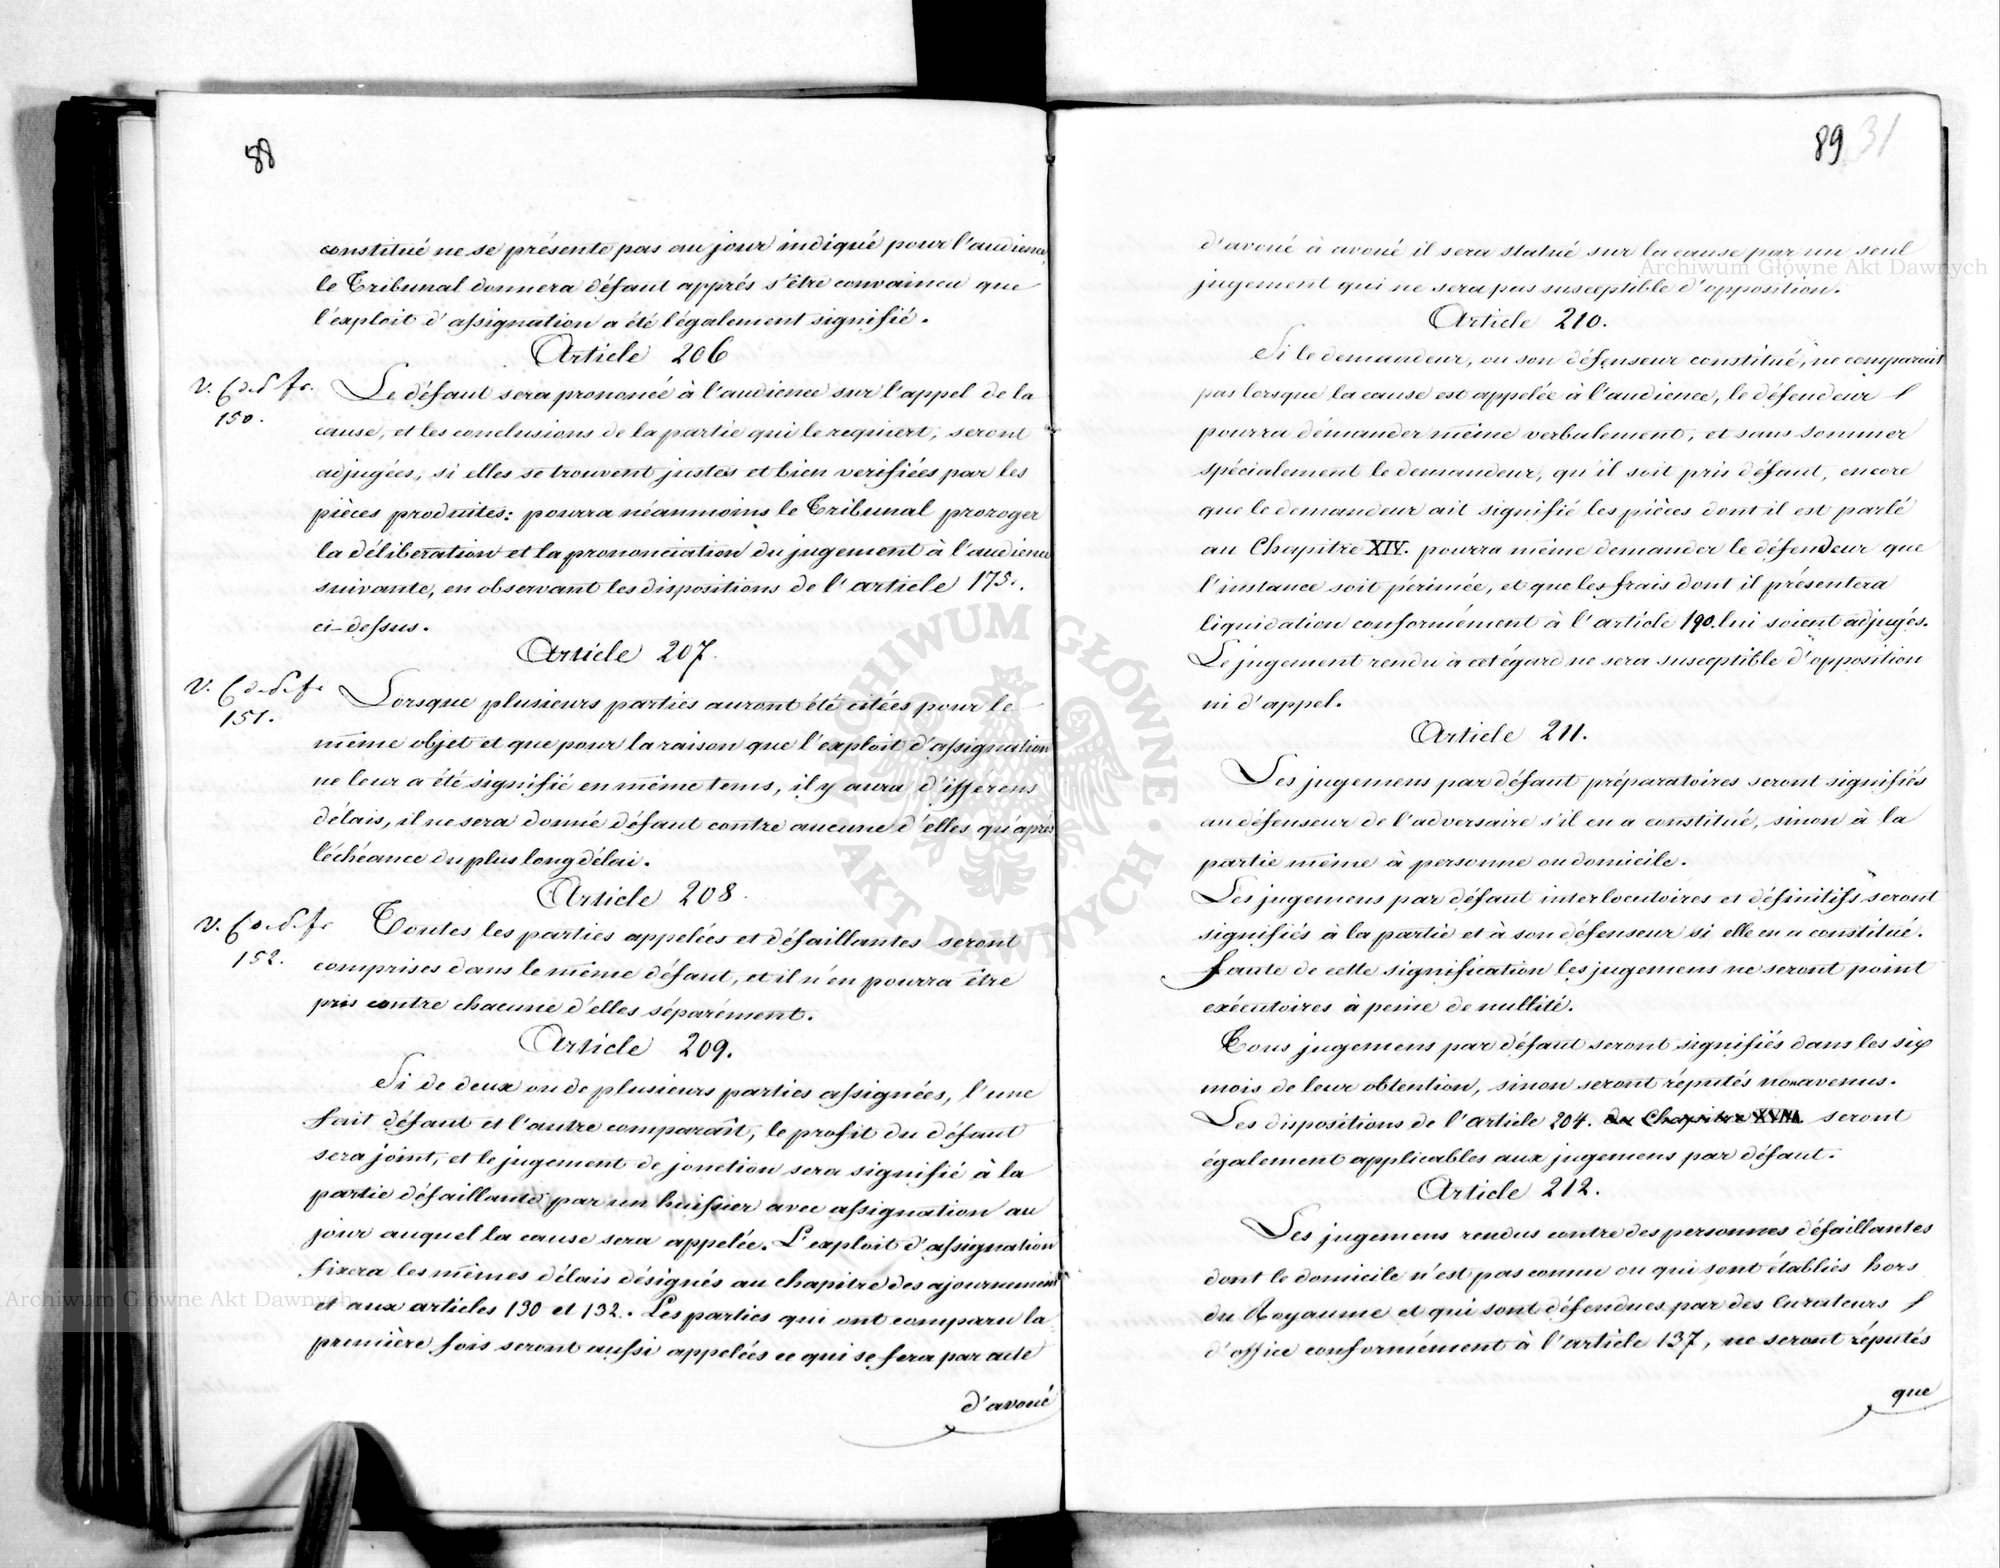 88
constitué ne se présente pas au jour indiqué pour l'audience,
le Tribunal donnera défaut apprés s'être convaincu que
l'exploit d'assignation a été légalement signifié.
Article 206
V. C. d. P. fr.
150.
Le défaut sera prononcé à l'audience sur l'appel de la
cause, et les conclusions de la partie qui le requiert, seront
adjugées, si elles se trouvent justes et bien verifiées par les
pièces produites: pourra néanmoins le Tribunal proroger
la déliberation et la prononciation du jugement à l'audience
suivante, en observant les dispositions de l'article 175.
ci-dessus.
Article 207.
V. C. d. P. fr
151.
Lorsque plusieurs parties auront été citées pour le
même objet et que pour la raison que l'exploit d'assignation
ne leur a été signifié en même tems, il y aura d'ifférens
délais, il ne sera donné défaut contre aucune d'elles qu'après
l'échéance du plus long délai.
Article 208.
V. C. d. P. fr
152.
Toutes les parties appelées et défaillantes seront
comprises dans le même défaut, et il n'en pourra être
pris contre chacune d'elles séparément.
Article 209.
Si de deux ou de plusieurs parties assignées, l'une
fait défaut et l'autre comparaît, le profit du défaut
sera joint, et le jugement de jonction sera signifié à la
partie défaillante par un huissier avec assignation au
jour auquel la cause sera appelée. L'exploit d'assignation
fixera les mêmes délais désignés au chapitre des ajournement
et aux articles 130 et 132. Les parties qui ont comparu la
première fois seront aussi appelées ce qui se fera par acte
d'avoué
89 31
d'avoué à avoué il sera statué sur la cause par un seul
jugement qui ne sera pas susceptible d'opposition.
Article 210.
Si le demandeur, ou son défenseur constitué, ne comparait
pas lorsque la cause est appelée à l'audience, le défendeur
pourra démander même verbalement, et sans sommer
spécialement le demandeur, qu'il soit pris défaut, encore
que le demandeur ait signifié les pièces dont il est parlé
au Chapitre XIV. pourra même demander le défendeur que
l'instance soit périmée, et que les frais dont il présentera
liquidation conformément à l'article 190. lui soient adjugés.
Le jugement rendu à cet égard ne sera susceptible d'opposition
ni d'appel.
Article 211.
Les jugemens par défaut préparatoires seront signifiés
au défenseur de l'adversaire s'il en a constitué, sinon à la
partie même à personne ou domicile.
Les jugemens par défaut interlocutoires et définitifs seront
signifiés à la partie et à son défenseur si elle en a constitué.
faute de cette signification les jugemens ne seront point
exécutoires à peine de nullité.
Tous jugemens par défaut seront signifiés dans les six
mois de leur obtention, sinon seront réputés non avenus.
Les dispositions de l'article 204. du Chapitre XVIII. seront
également applicables aux jugemens par défaut.
Article 212.
Les jugemens rendus contre des personnes défaillantes
dont le domicile n'est pas connu ou qui sont établies hors
du Royaume et qui sont défendues par des Curateurs
d'office conformément à l'article 137, ne seront réputés
que
Archiwum Główne Akt Dawnych
Archiwum Główne Akt Dawnych
ARCHIWUM GŁÓWNE • AKT DAWNYCH •